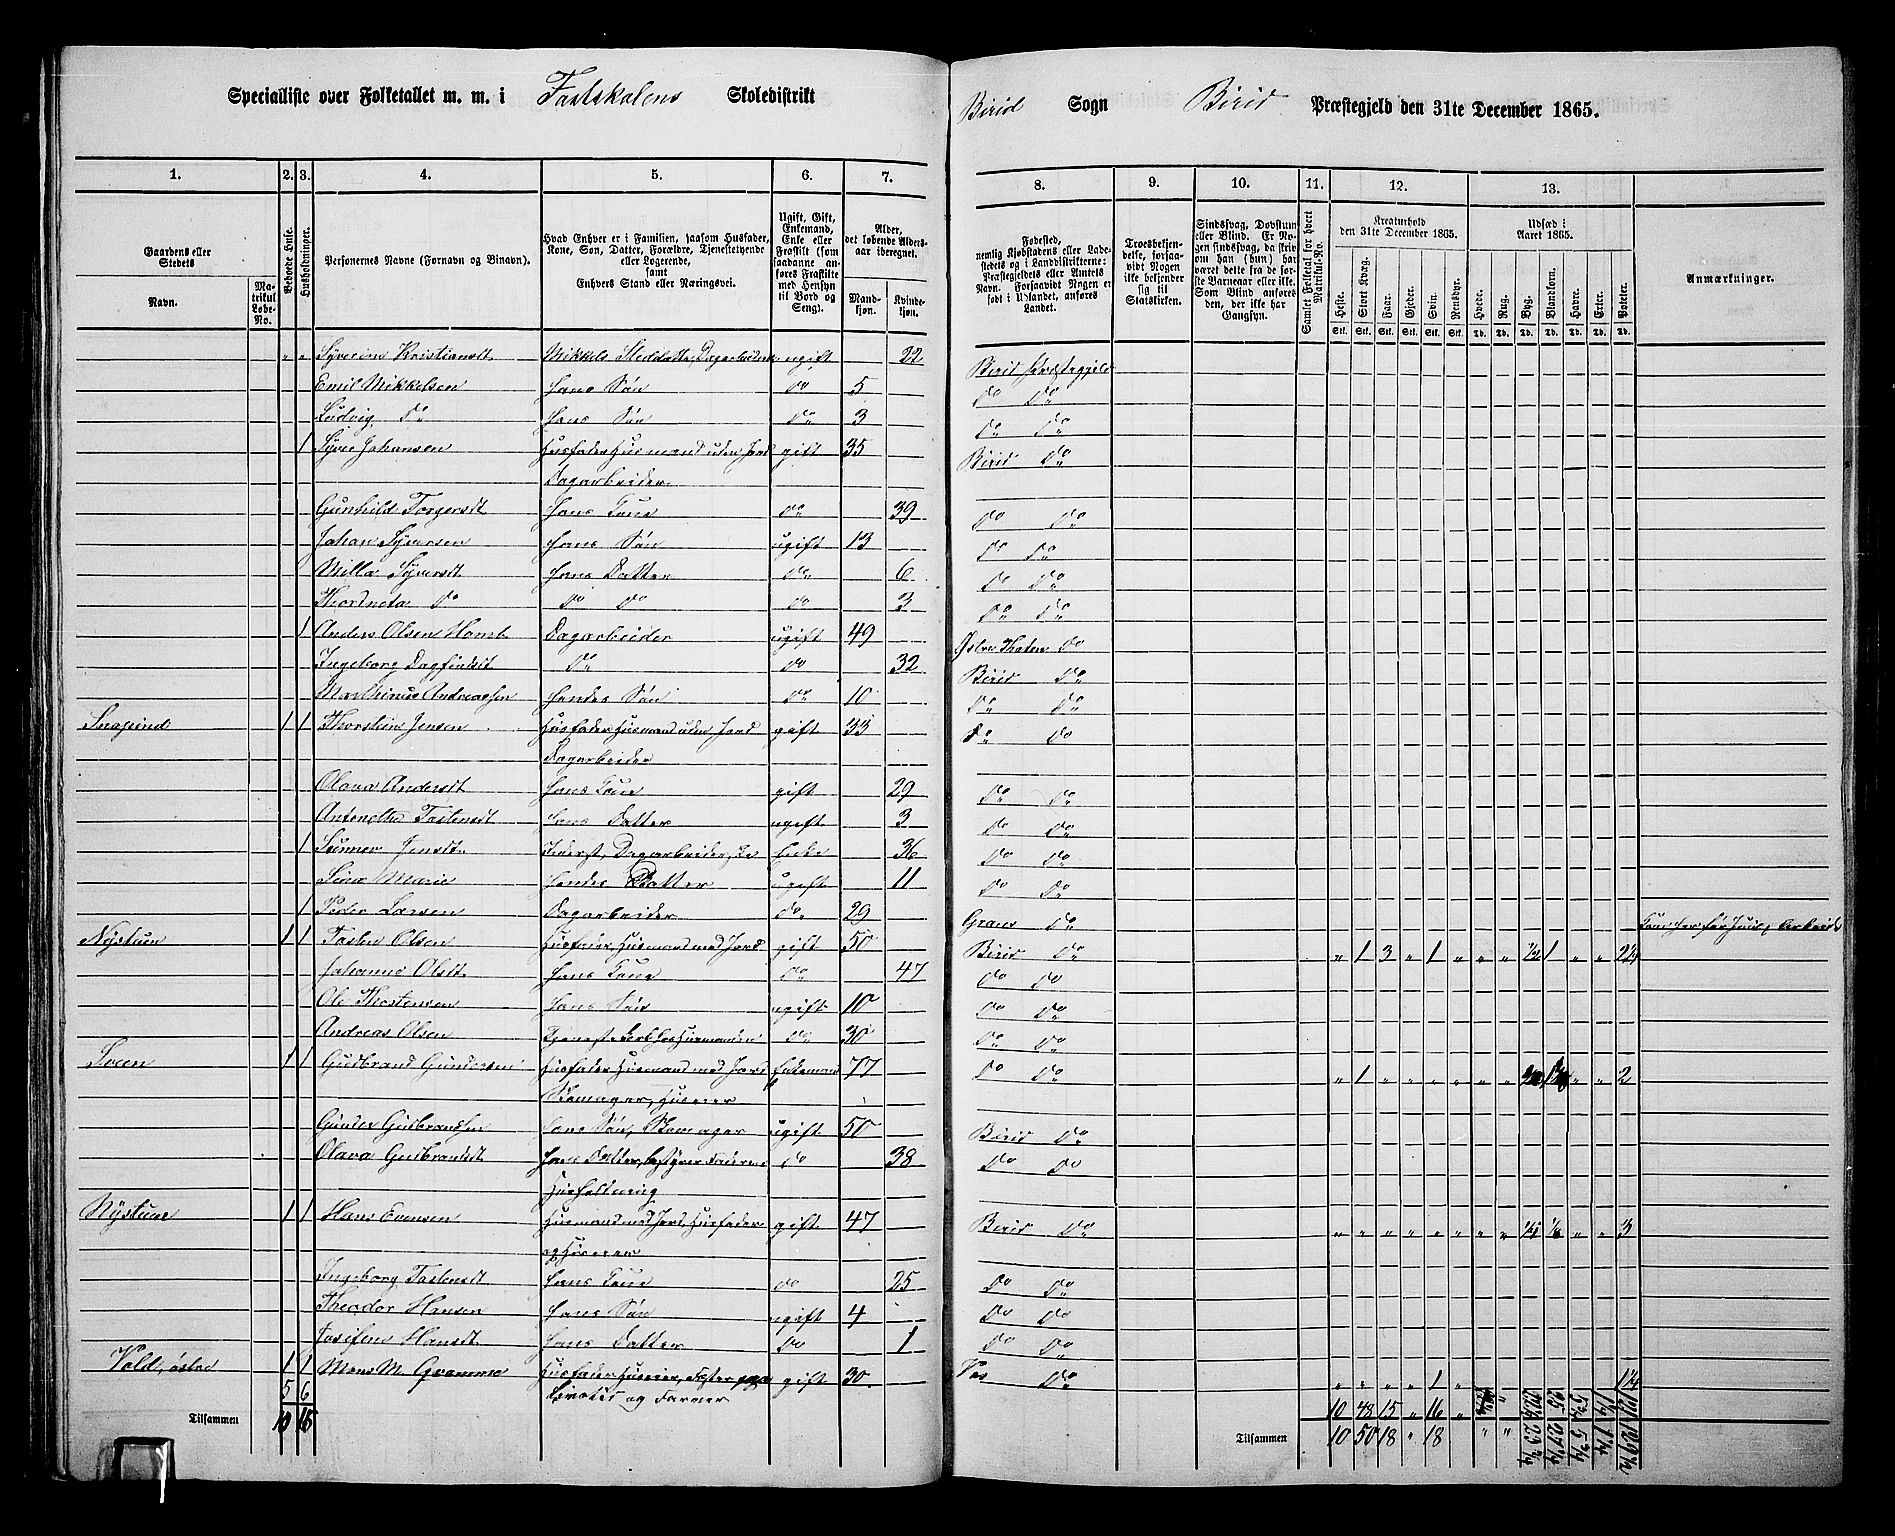 Specialliste over Folketallet m. m. i Fastskolens Skoledistrikt
Birid Sogn Birid Præstegjeld den 31te December 1865.
1. 2. 3. 4. 5. 6. 7.
8. 9. 10. 11. 12. 13.
Gaardens eller Stedets
Navn.
Matrikul Løbe-No.
Beboede Huse.
Husholdninger.
Personernes Navne (Fornavn og Binavn).
Hvad Enhver er i Familien, saasom Husfader, Kone, Søn, Datter, Forældre, Tjenestetyende eller Logerende, samt Enhvers Stand eller Næringsvei.
Ugift, Gift, Enkemand, Enke eller Fraskilt (som saadanne anføres Fraskilte med Hensyn til Bord og Seng).
Alder, det løbende Alders-aar iberegnet.
Mandkjøn. Kvindekjøn.
Fødested, nemlig Kjøbstadens eller Ladestedets og i Landdistrikterne: Præstegjeldets eller Amtets Navn. Forsaavidt Nogen er født i Udlandet, anføres Landet.
Troesbekjendelse, forsaavidt Nogen ikke bekjender sig til Statskirken.
Sindssvag, Døvstum eller Blind. Er Nogen sindssvag, da skrives om han (hun) har været dette fra de første Barneaar eller ikke. Som Blind anføres den, der ikke har Gangsyn.
Samlet Folketal for hvert Matrikul-No.
Kreaturhold den 31te December 1865.
Heste. Stort Kvæg. Faar. Gjeder. Svin. Rensdyr.
Udsæd i Aaret 1865.
Hvede. Rug. Byg. Blandkorn. Havre. Erter. Poteter.
Anmærkninger.
" " Syverine Kristiansdt Mikkels Steddatter, Dagarbeiderske ugift 22 Birid Præstegjeld
Emil Mikkelsen hans Søn do 5 do do
Ludvig do hans Søn do 3 do do
1 Syver Johansen Husfader Husmand uden Jord gift 35 Birid do
Dagarbeider
Gunhild Torgersdt hans Kone do 39 do do
Johan Syversen hans Søn ugift 13 do do
Milla Syversdt hans Datter do 6 do do
do do do do 3 do do
1 Anders Olsen Dagarbeider ugift 49 Østre Thoten do
Ingeborg Dagfinsdt do do 32 Birid do
Mathinus Andreassen hendes Søn do 10 do do
1 1 Thorstein Jensen Husfader Husmand uden Jord gift 33 do do
Dagarbeider
Olava Andersdt hans Kone gift 29 do do
Antonethe Tostensdt hans Datter ugift 3 do do
1 Jensdt Inderst, Dagarbeiderske Enke 36 do do
Sina Marie hendes Datter ugift 11 do do
1 Peder Larsen Dagarbeider do 29 Grans do
Nystuen 1 1 Tosten Olsen Husfader, Husmand med Jord gift 50 Birid do " 1 3 " 1 " " " 1/2 1 " " 2 1/4
Johanne Olsdt hans Kone do 47 do do
Ole Thostensen hans Søn ugift 10 do do
Andreas Olsen do 30 do do
Sveen 1 1 Gudbrand Gundersen Husfader Husmand med Jord Enkemand 77 do do " 1 " " " " " " " " 2
Skomager, Huseier
Gunder Gudbrandsen hans Søn, Skomager ugift 50 Birid do
Olava Gudbrandsdt hans Datter, bestyrer Faderens do 38 do do
Husholdning
Nystuen 1 1 Hans Evensen Husmand med Jord, Husfader gift 47 Birid do " " " " " " " " 1/4 1/4 " " 3
og Huseier
Ingeborg Tostensdt hans Kone do 25 do do
Theodor Hansen hans Søn ugift 4 do do
Josefine Hansdt hans Datter do 1 do do
Vold, østre 1 1 Mons M. Gramme Husfader Huseier, gift 30 do " " " " 1 " 1 1/4
og Farver
5 6
Tilsammen 10 15
10 48 15 " 16 "
Tilsammen 10 50 18 " 18 " "